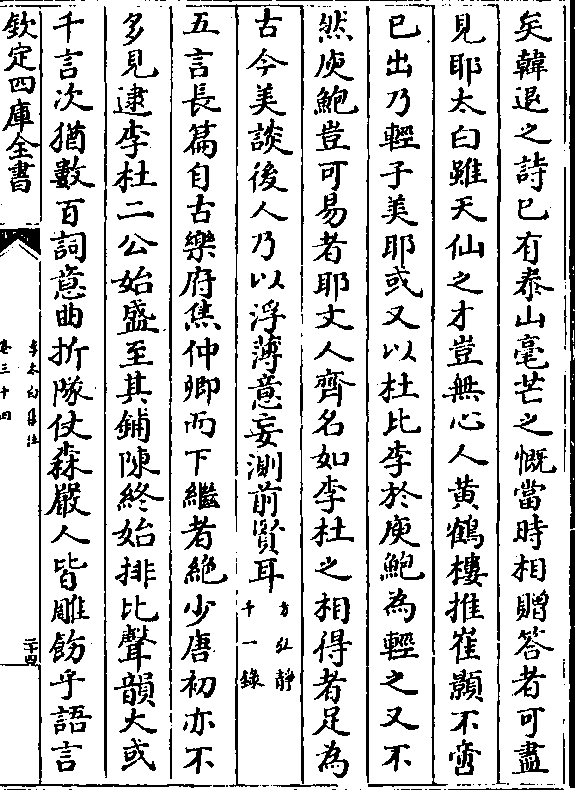 矣韓退之詩已有泰山毫芒之慨當時相贈答者可盡
見耶太白雖天仙之才豈無心人黃鶴樓推崔顥不啻
已出乃輕子美耶或又以杜比李於庾鮑為輕之又不
然庾鮑豈可易者耶文人齊名如李杜之相得者足為
古今美談後人乃以浮薄意妄測前賢耳方弘靜千一錄
五言長篇自古樂府焦仲卿而下繼者絶少唐初亦不
多見逮李杜二公始盛至其鋪陳終始排比聲韻大或
千言次猶數百詞意曲折隊仗森嚴人皆雕飭乎語言
欽定四庫全書
李太白集注
卷三十四
二十四